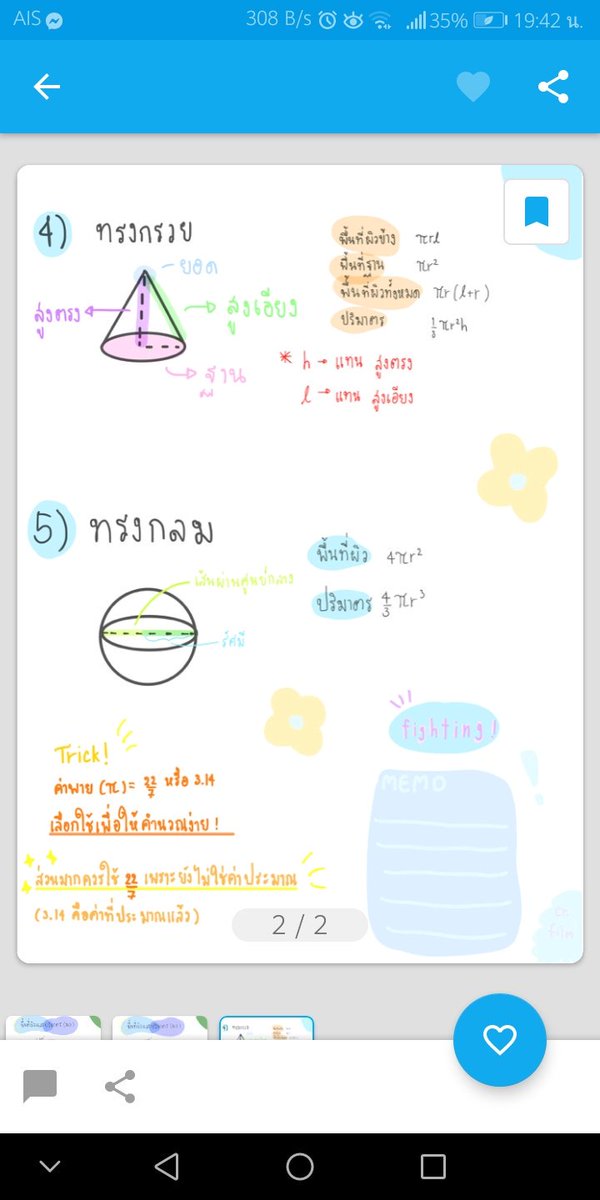 AIS 308 B/s 35% 19:42 น.
4) ทรงกรวย
ยอด
สูงตรง
สูงเอียง
ฐาน
พื้นที่ผิวข้าง πrl
พื้นที่ฐาน πr²
พื้นที่ผิวทั้งหมด πr(l+r)
ปริมาตร ⅓πr²h
* h → แทน สูงตรง
l → แทน สูงเอียง
5) ทรงกลม
เส้นผ่านศูนย์กลาง
รัศมี
พื้นที่ผิว 4πr²
ปริมาตร 4/3 πr³
Trick!
ค่าพาย (π) = 22/7 หรือ 3.14
เลือกใช้เพื่อให้คำนวณง่าย!
ส่วนมากควรใช้ 22/7 เพราะยังไม่ใช่ค่าประมาณ
(3.14 คือค่าที่ประมาณแล้ว)
fighting!
MEMO
cr.
film
2 / 2